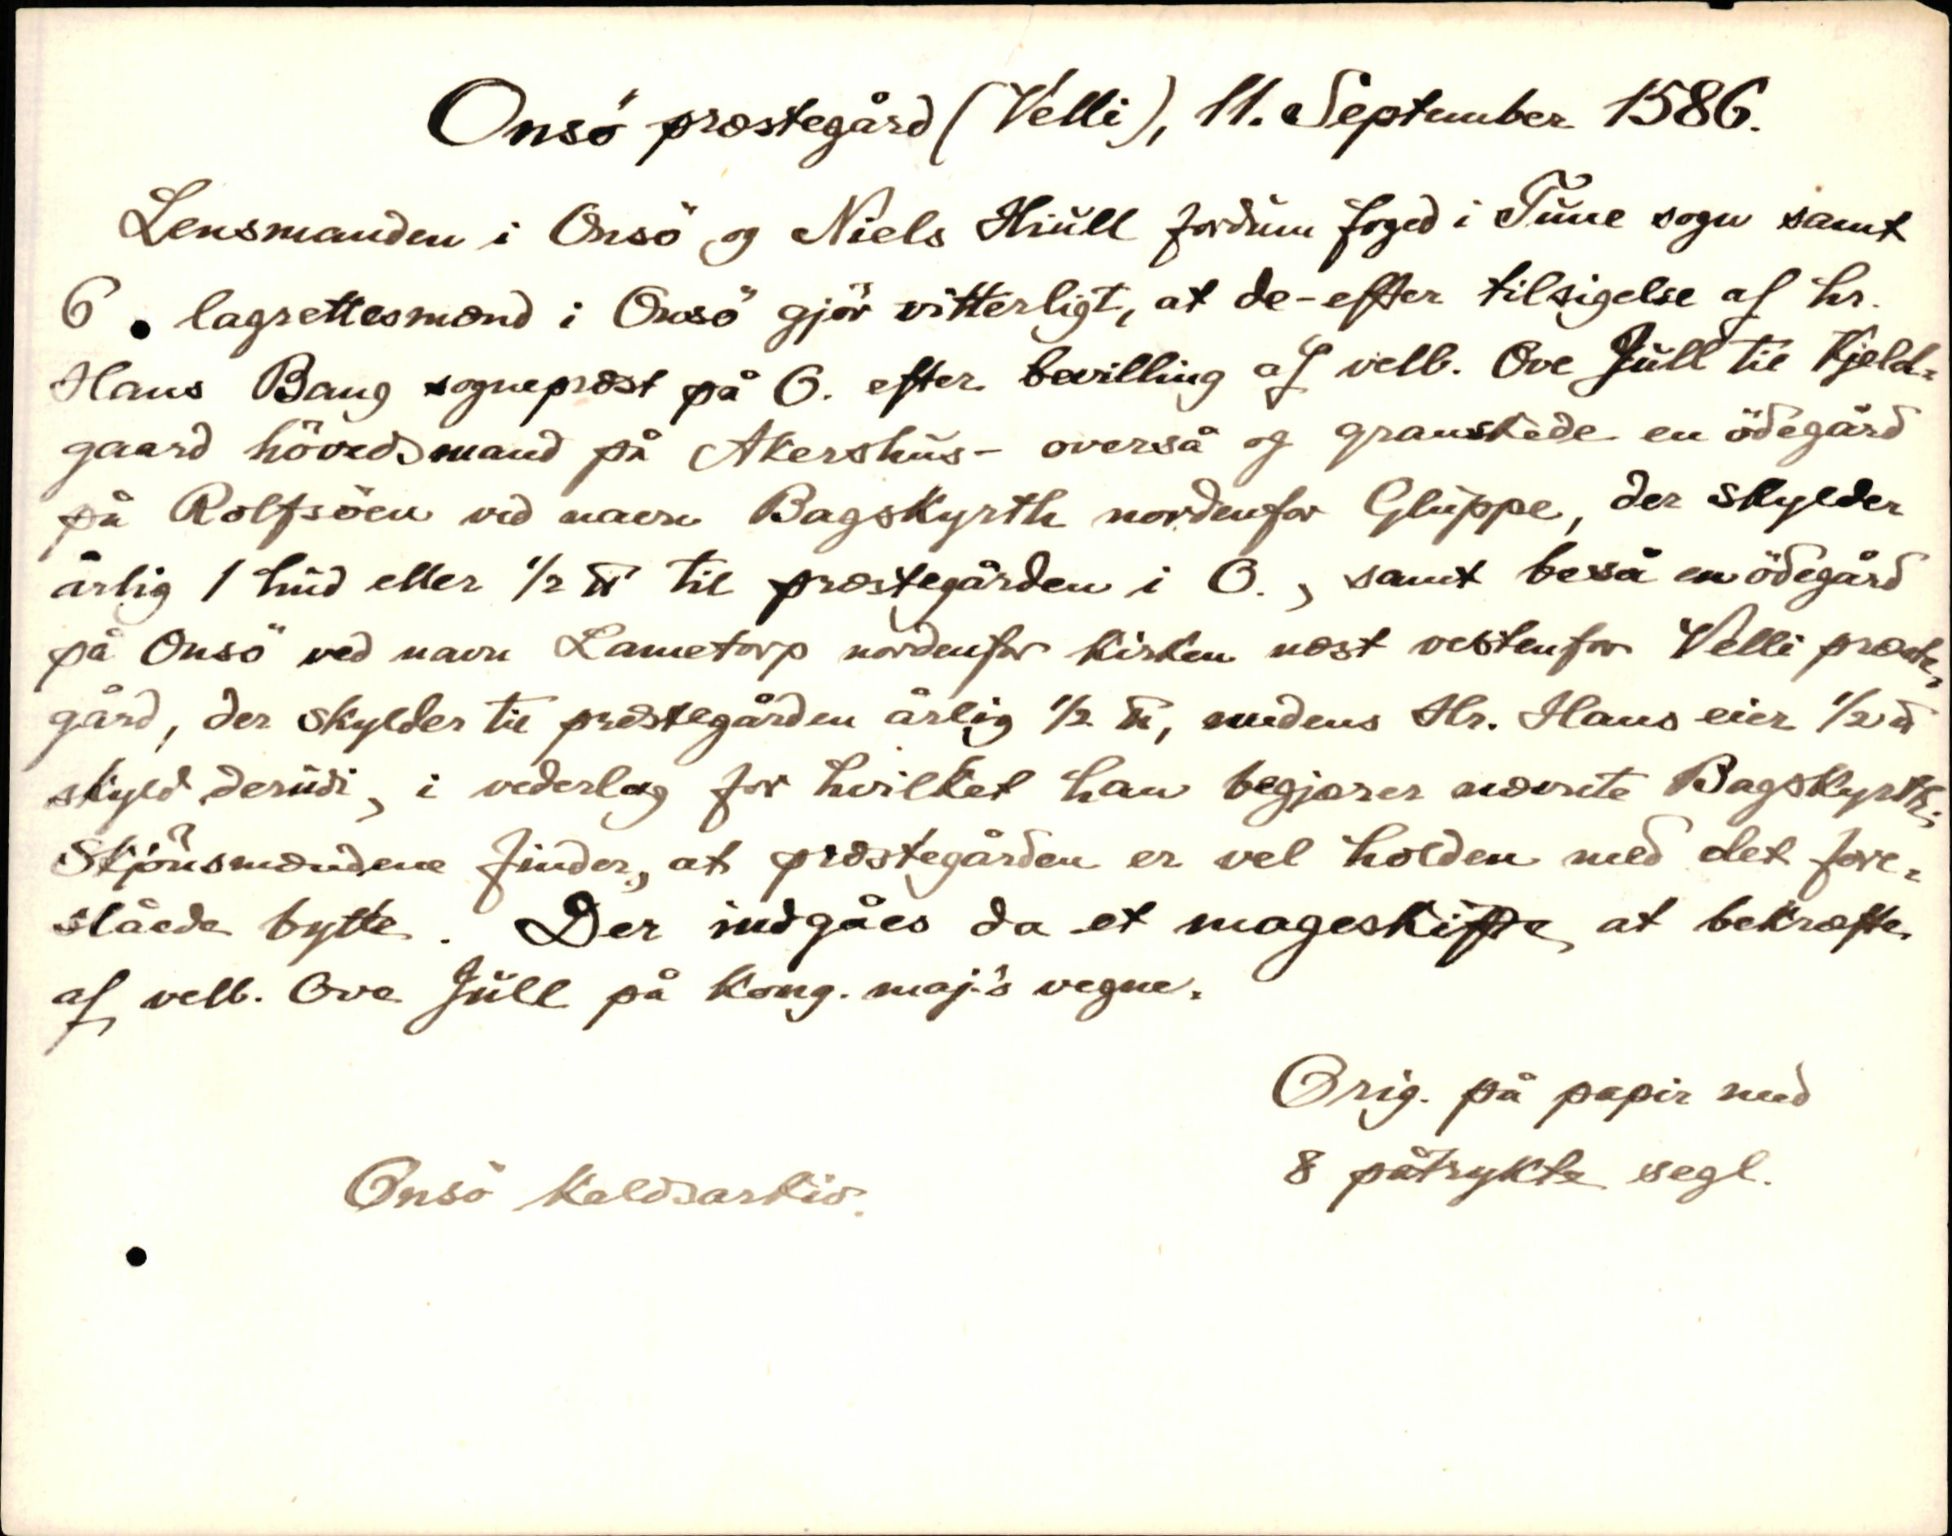 Onsö præstegård (Velli), 11. September 1586.
Lensmanden i Onsö og Niels Hiull fordum foged i Tune sogn samt
6 lagrettesmænd i Onsö gjör vitterligt, at de - efter tilsigelse af hr.
Hans Bang sognepræst på O. efter bevilling af velb. Ove Jull til Kjeld-
gaard hövedsmand på Akershus - overså og granskede en ödegård
på Rolfsöen ved navn Bagskyrth nordenfor Gluppe, der skylder
årlig 1 hud eller 1/2 ℔ til præstegården i O., samt beså en ödegård
på Onsö ved navn Lametorp nordenfor kirken næst vestenfor Velli præste-
gård, der skylder til præstegården årlig 1/2 ℔, medens Hr. Hans eier 1/2 ℔
skyld derudi, i vederlag for hvilket han begjærer nævnte Bagskyrth;
Skjönsmændene finder, at præstegården er vel holden med det fore-
slåede bytte. Der indgåes da et mageskifte, at bekræfte
af velb. Ove Jull på kong. maj.s vegne.
Orig. på papir med
8 påtrykte segl.
Onsö kaldsarkiv.